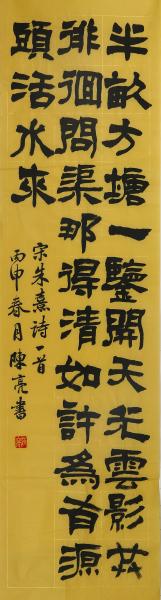 半畝方塘一鑒開天光雲影共
徘徊問渠那得清如許為有源
頭活水來
宋朱熹詩一首
丙申春月陳亮書